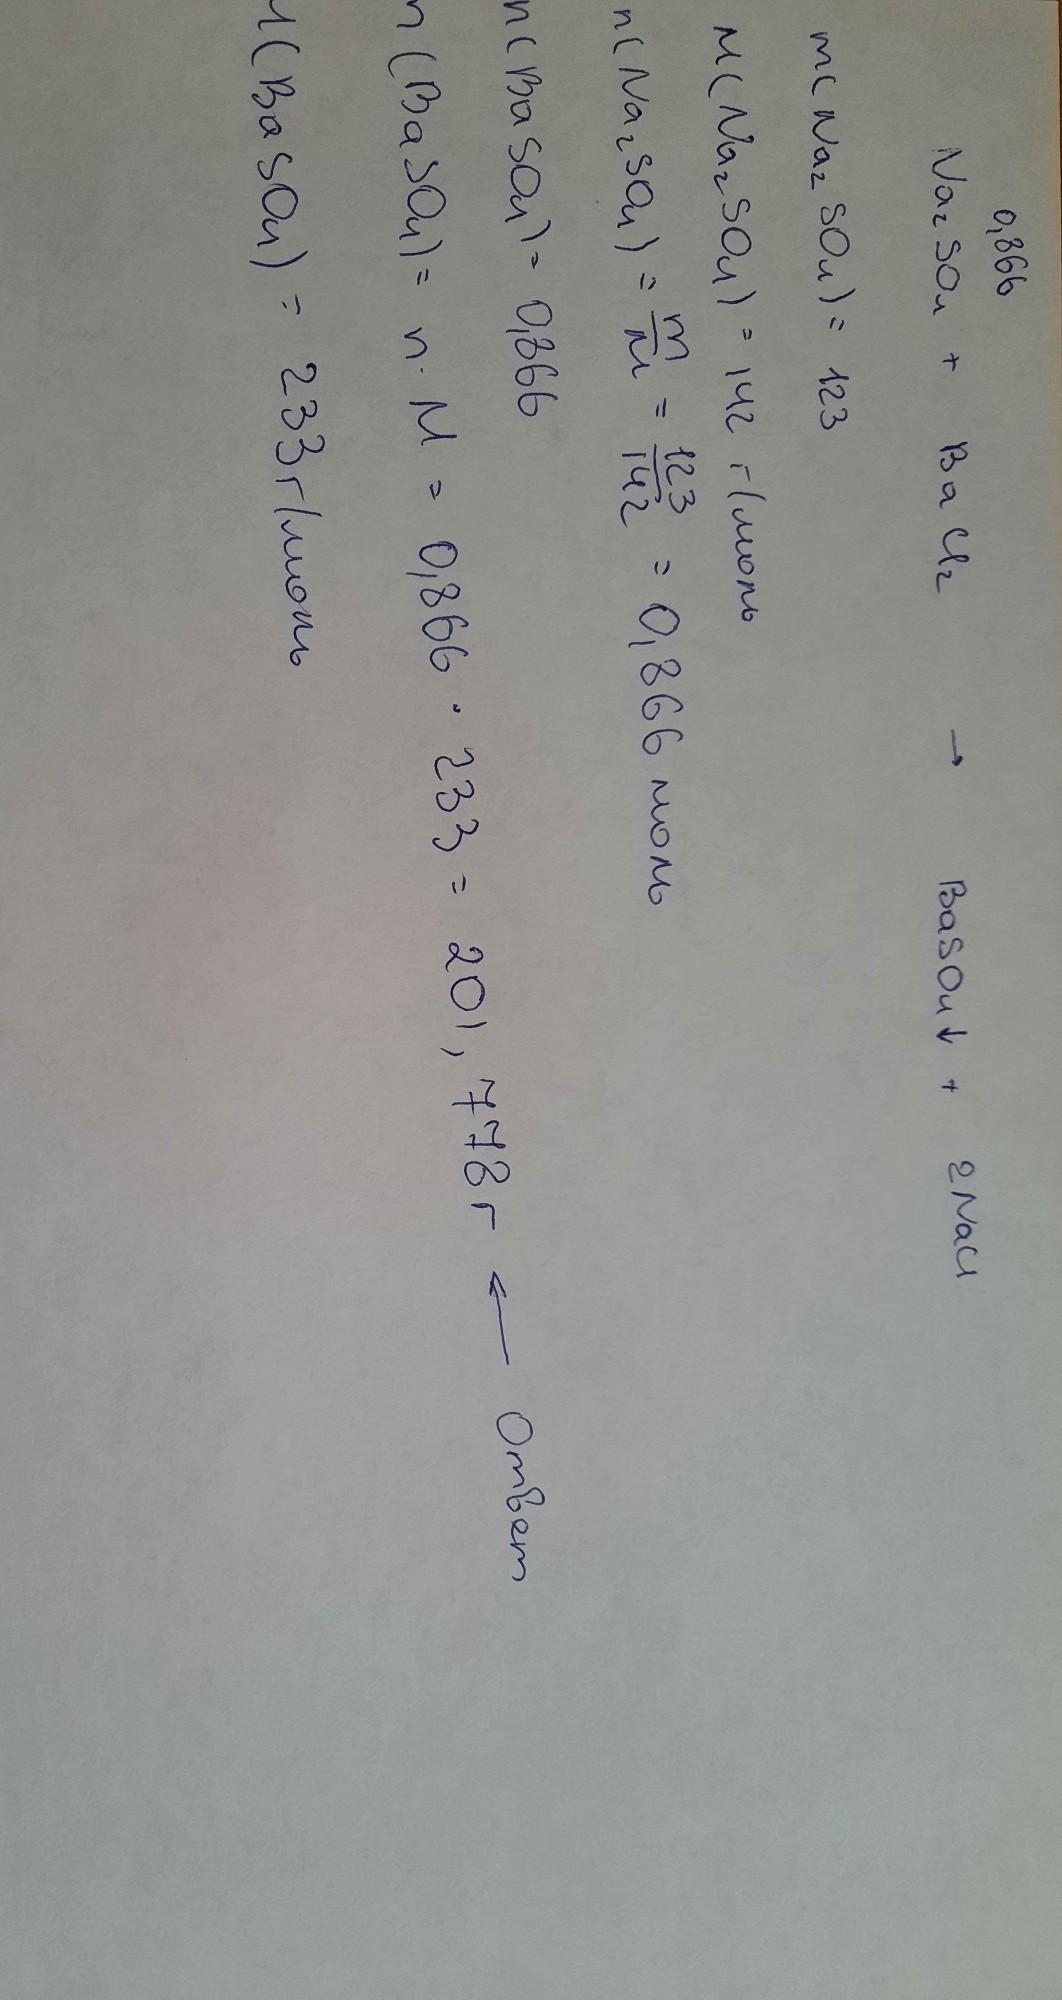 0,866
Na₂SO₄ + BaCl₂ → BaSO₄↓ + 2NaCl
m(Na₂SO₄) = 123
M(Na₂SO₄) = 142 г/моль
n(Na₂SO₄) = m/M = 123/142 = 0,866 моль
n(BaSO₄) = 0,866
m(BaSO₄) = n · M = 0,866 · 233 = 201,778 г ← Ответ
M(BaSO₄) = 233 г/моль